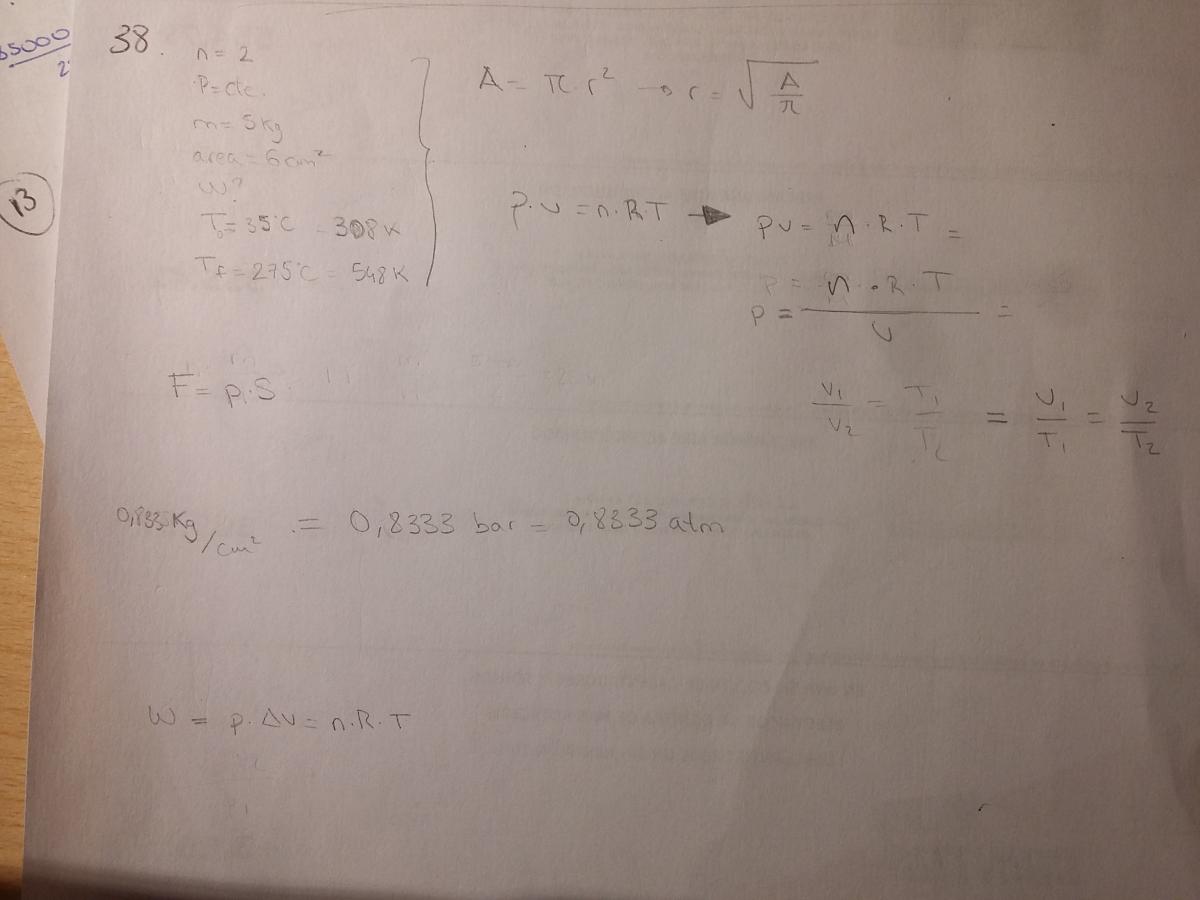 65000
2
38.
n = 2
P = cte.
m = 5 kg
area = 6 cm²
W?
T₀ = 35°C - 308 K
T_f = 275°C = 548 K
A = π · r² → r = √(A/π)
13
p · v = n · R · T → pv = n · R · T =
p = n · R · T / v =
F = p · S
v₁/v₂ = T₁/T₂ = v₁/T₁ = v₂/T₂
0,833 Kg/cm² = 0,8333 bar = 0,8333 atm
W = p · Δv = n · R · T